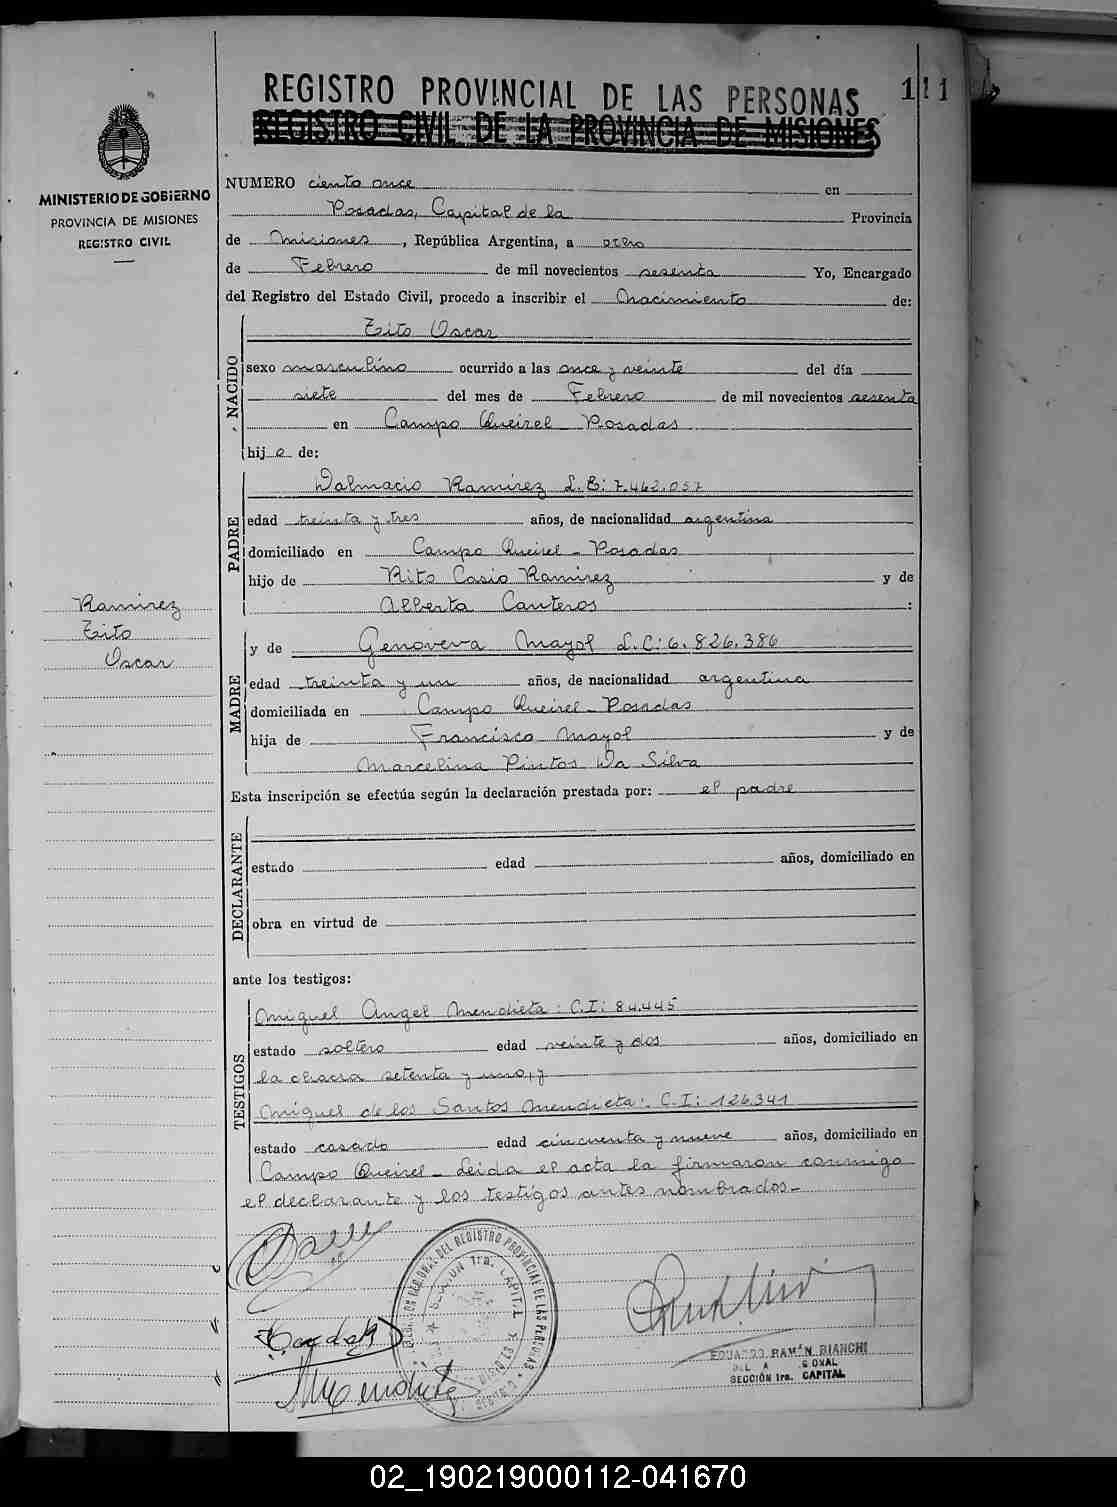 REGISTRO PROVINCIAL DE LAS PERSONAS
111
REGISTRO CIVIL DE LA PROVINCIA DE MISIONES
MINISTERIO DE GOBIERNO
PROVINCIA DE MISIONES
REGISTRO CIVIL
NUMERO ciento once en
Posadas, Capital de la Provincia
de Misiones, República Argentina, a ocho
de Febrero de mil novecientos sesenta Yo, Encargado
del Registro del Estado Civil, procedo a inscribir el Nacimiento de:
NACIDO
Tito Oscar
sexo masculino ocurrido a las once y veinte del día
siete del mes de Febrero de mil novecientos sesenta
en Campo Queirel - Posadas
hijo de:
PADRE
Dalmacio Ramirez L.E: 7.462.057
edad treinta y tres años, de nacionalidad argentina
domiciliado en Campo Queirel - Posadas
hijo de Rito Casio Ramirez y de
Alberta Canteros :
Ramirez
Tito
Oscar
MADRE
y de Genoveva Mayol L.C: 6.826.386
edad treinta y un años, de nacionalidad argentina
domiciliada en Campo Queirel - Posadas
hija de Francisco Mayol y de
Marcelina Pintos Da Silva
Esta inscripción se efectúa según la declaración prestada por: el padre
DECLARANTE
estado edad años, domiciliado en
obra en virtud de
ante los testigos:
TESTIGOS
Miguel Angel Mendieta: C.I: 84.445
estado soltero edad veinte y dos años, domiciliado en
la chacra setenta y uno, y
Miguel de los Santos Mendieta: C.I: 126.341
estado casado edad cincuenta y nueve años, domiciliado en
Campo Queirel - Leida el acta la firmaron conmigo
el declarante y los testigos antes nombrados -
REGISTRO PROVINCIAL DE LAS PERSONAS
SECCION 1ra. CAPITAL
MISIONES
Mendieta
EDUARDO RAMÓN BIANCHI
SECCIÓN 1ra. CAPITAL
02_190219000112-041670